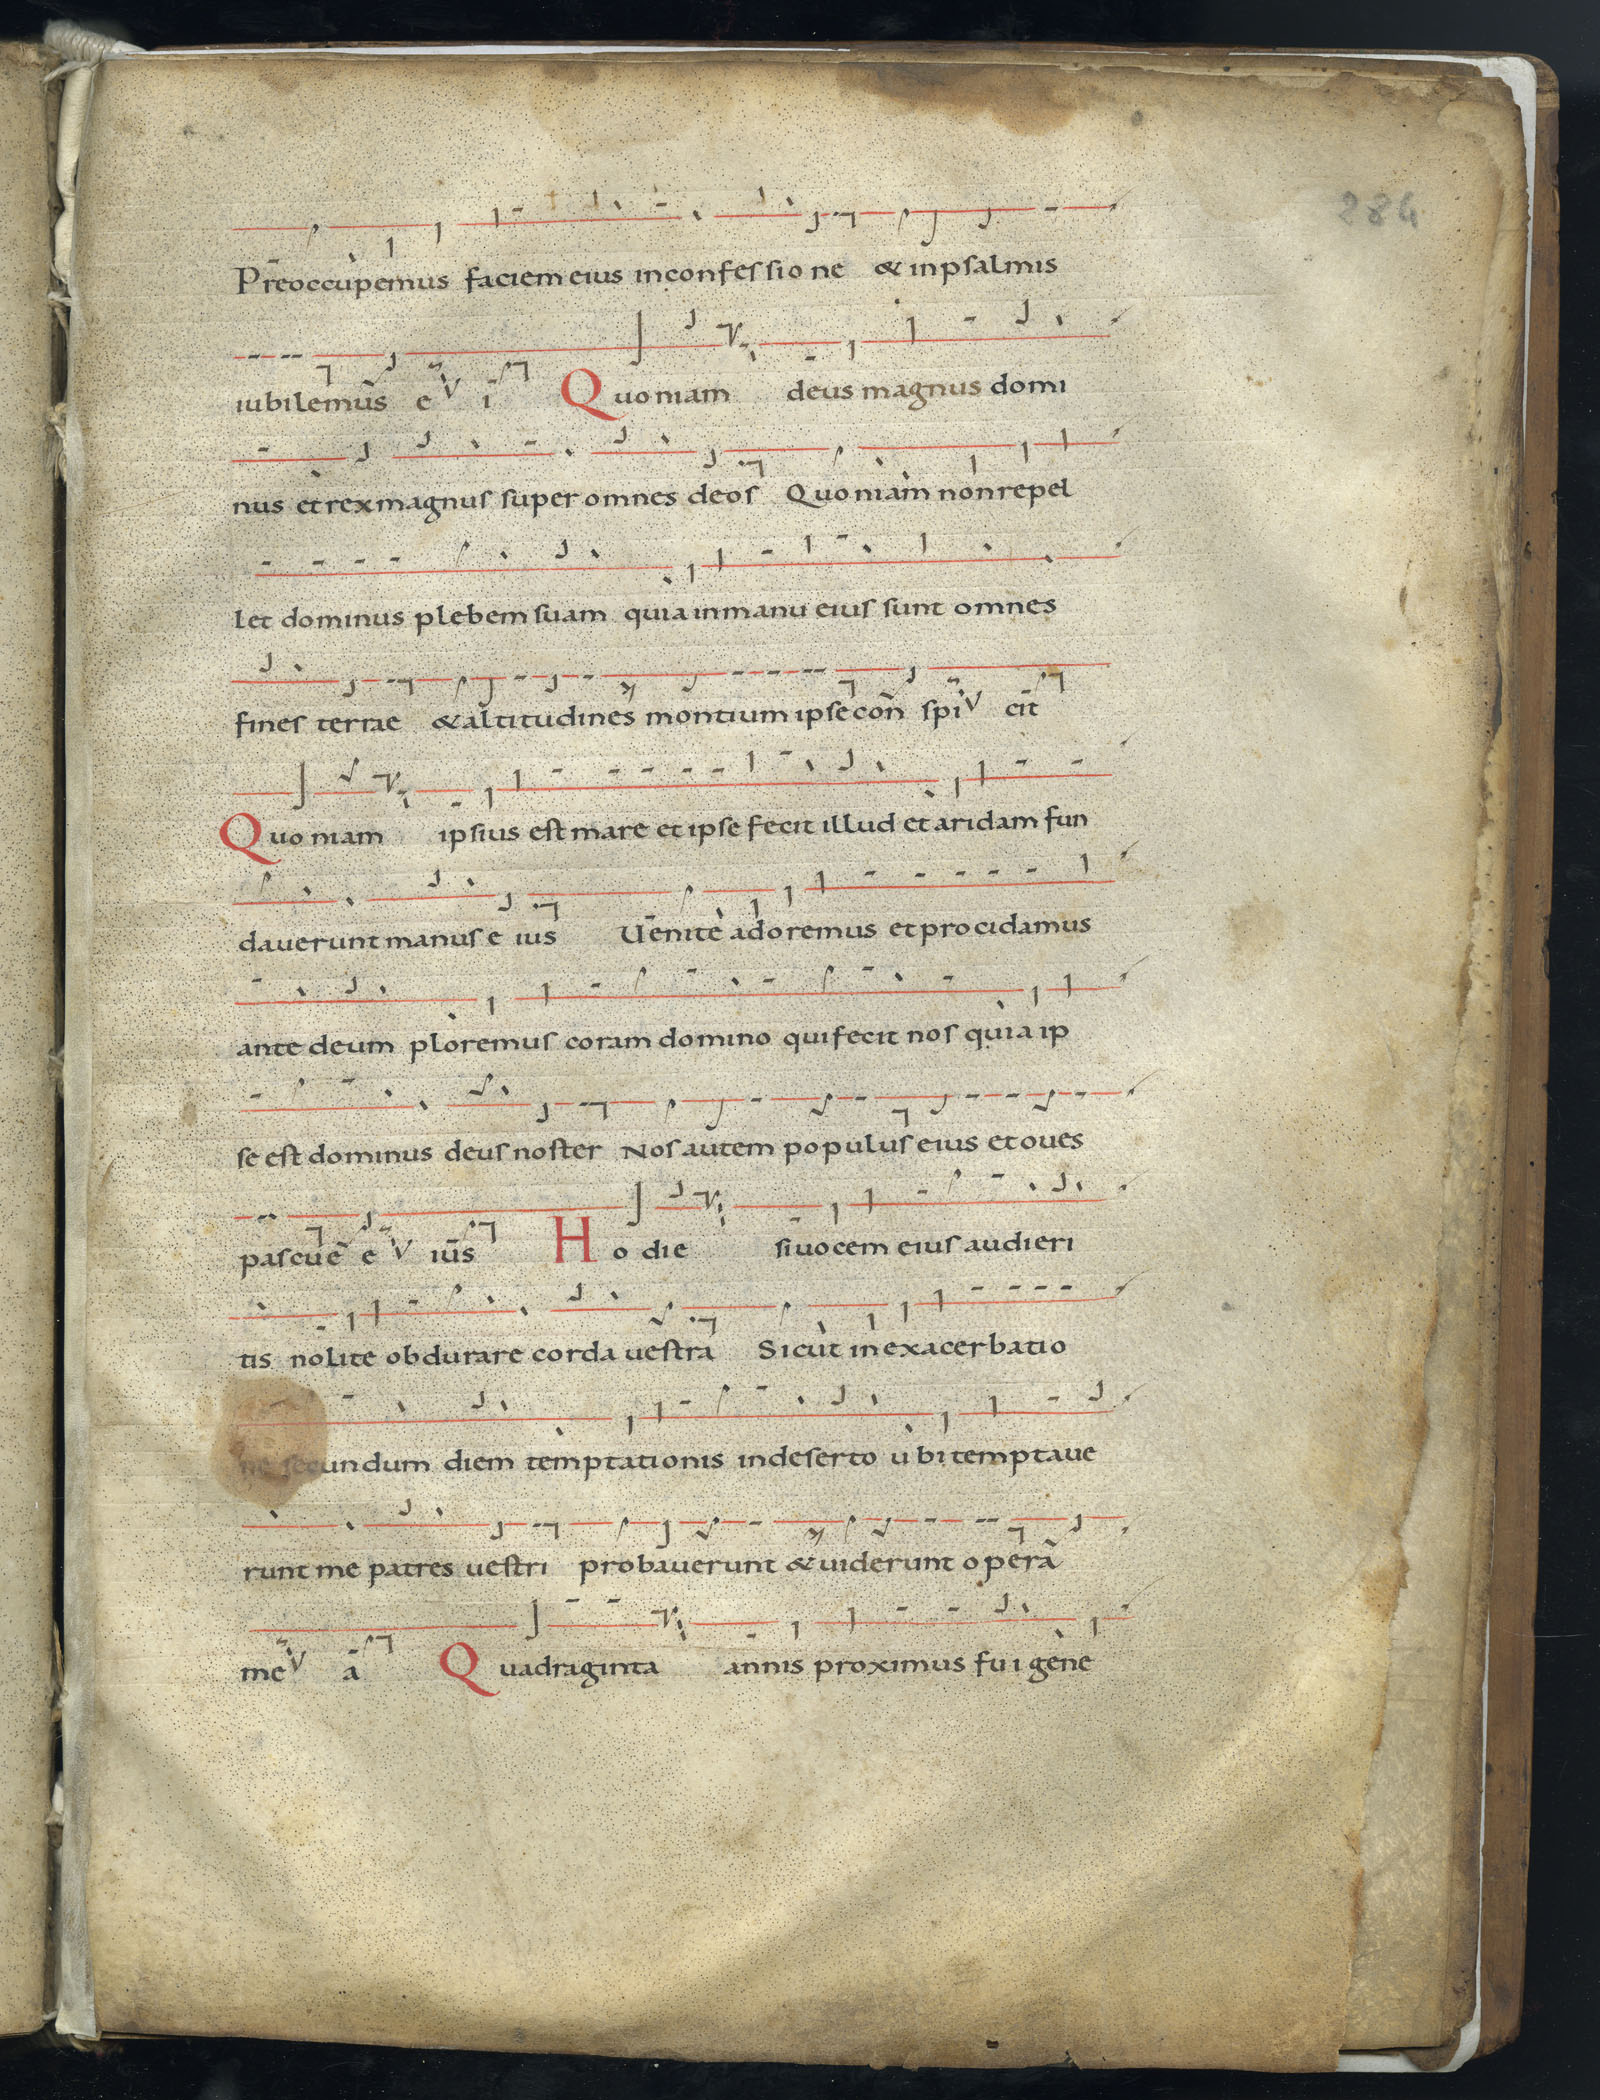 284
Preoccupemus faciem eius in confessione & in psalmis
iubilemus e i Quoniam deus magnus domi
nus et rex magnus super omnes deos Quoniam non repel
let dominus plebem suam quia in manu eius sunt omnes
fines terrae & altitudines montium ipse con spi cit
Quoniam ipsius est mare et ipse fecit illud et aridam fun
daverunt manus e ius Uenite adoremus et procidamus
ante deum ploremus coram domino qui fecit nos quia ip
se est dominus deus noster Nos autem populus eius et oues
pascue e ius Hodie si uocem eius audieri
tis nolite obdurare corda uestra Sicut in exacerbatio
ne secundum diem temptationis in deserto ubi temptaue
runt me patres uestri probauerunt & uiderunt opera
me a Quadraginta annis proximus fui gene